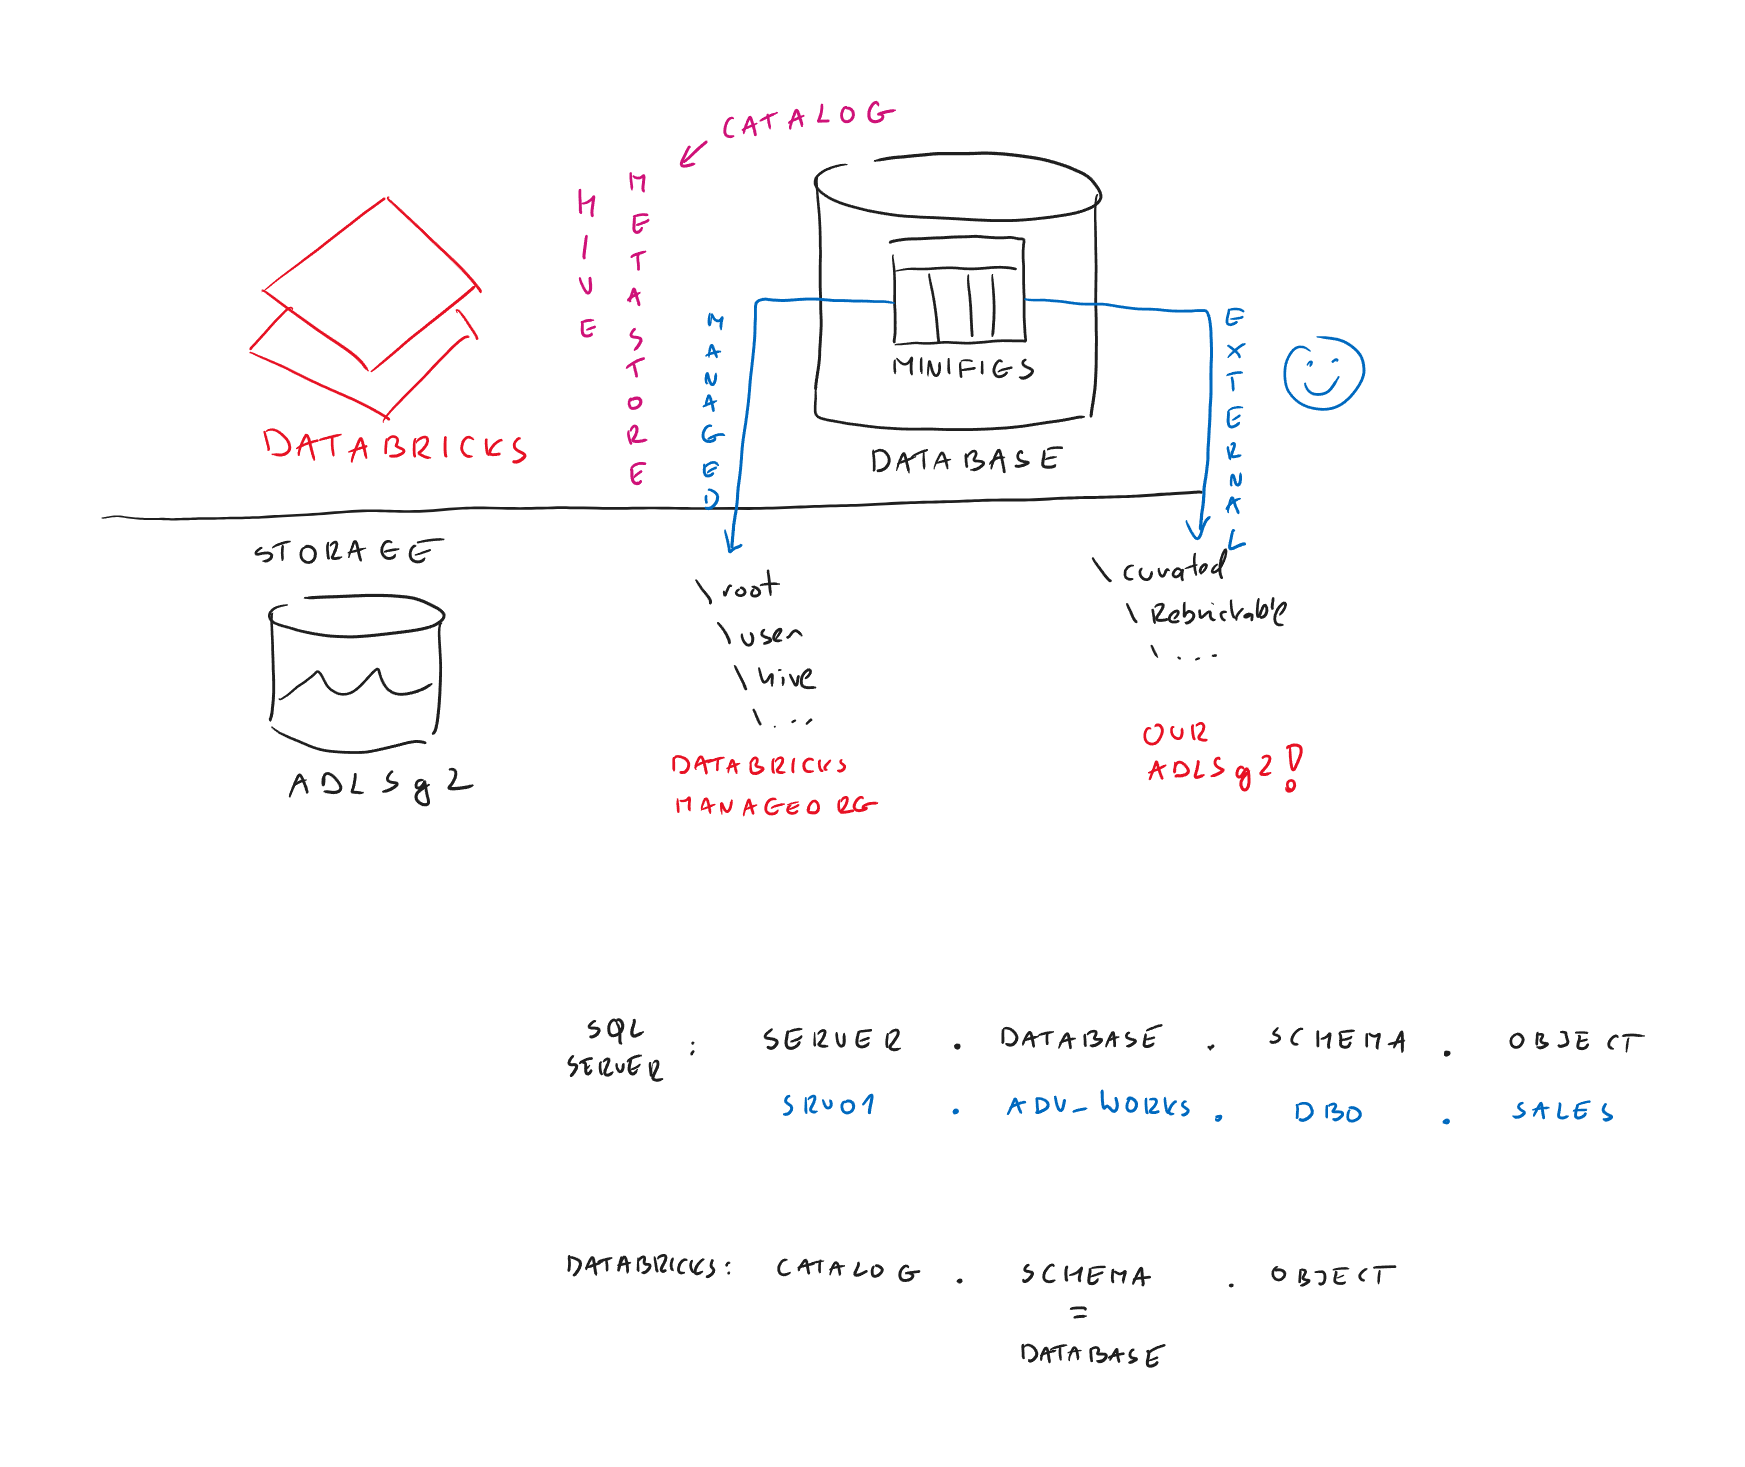 CATALOG
HIVE
METASTORE
MANAGED
EXTERNAL
MINIFIGS
DATABASE
DATABRICKS
STORAGE
ADLSg2
\root
\user
\hive
\...
DATABRICKS
MANAGED RG
\curated
\Rebrickable
\...
OUR
ADLSg2!
SQL
SERVER : SERVER . DATABASE . SCHEMA . OBJECT
SRV01 . ADV_WORKS . DBO . SALES
DATABRICKS: CATALOG . SCHEMA . OBJECT
=
DATABASE